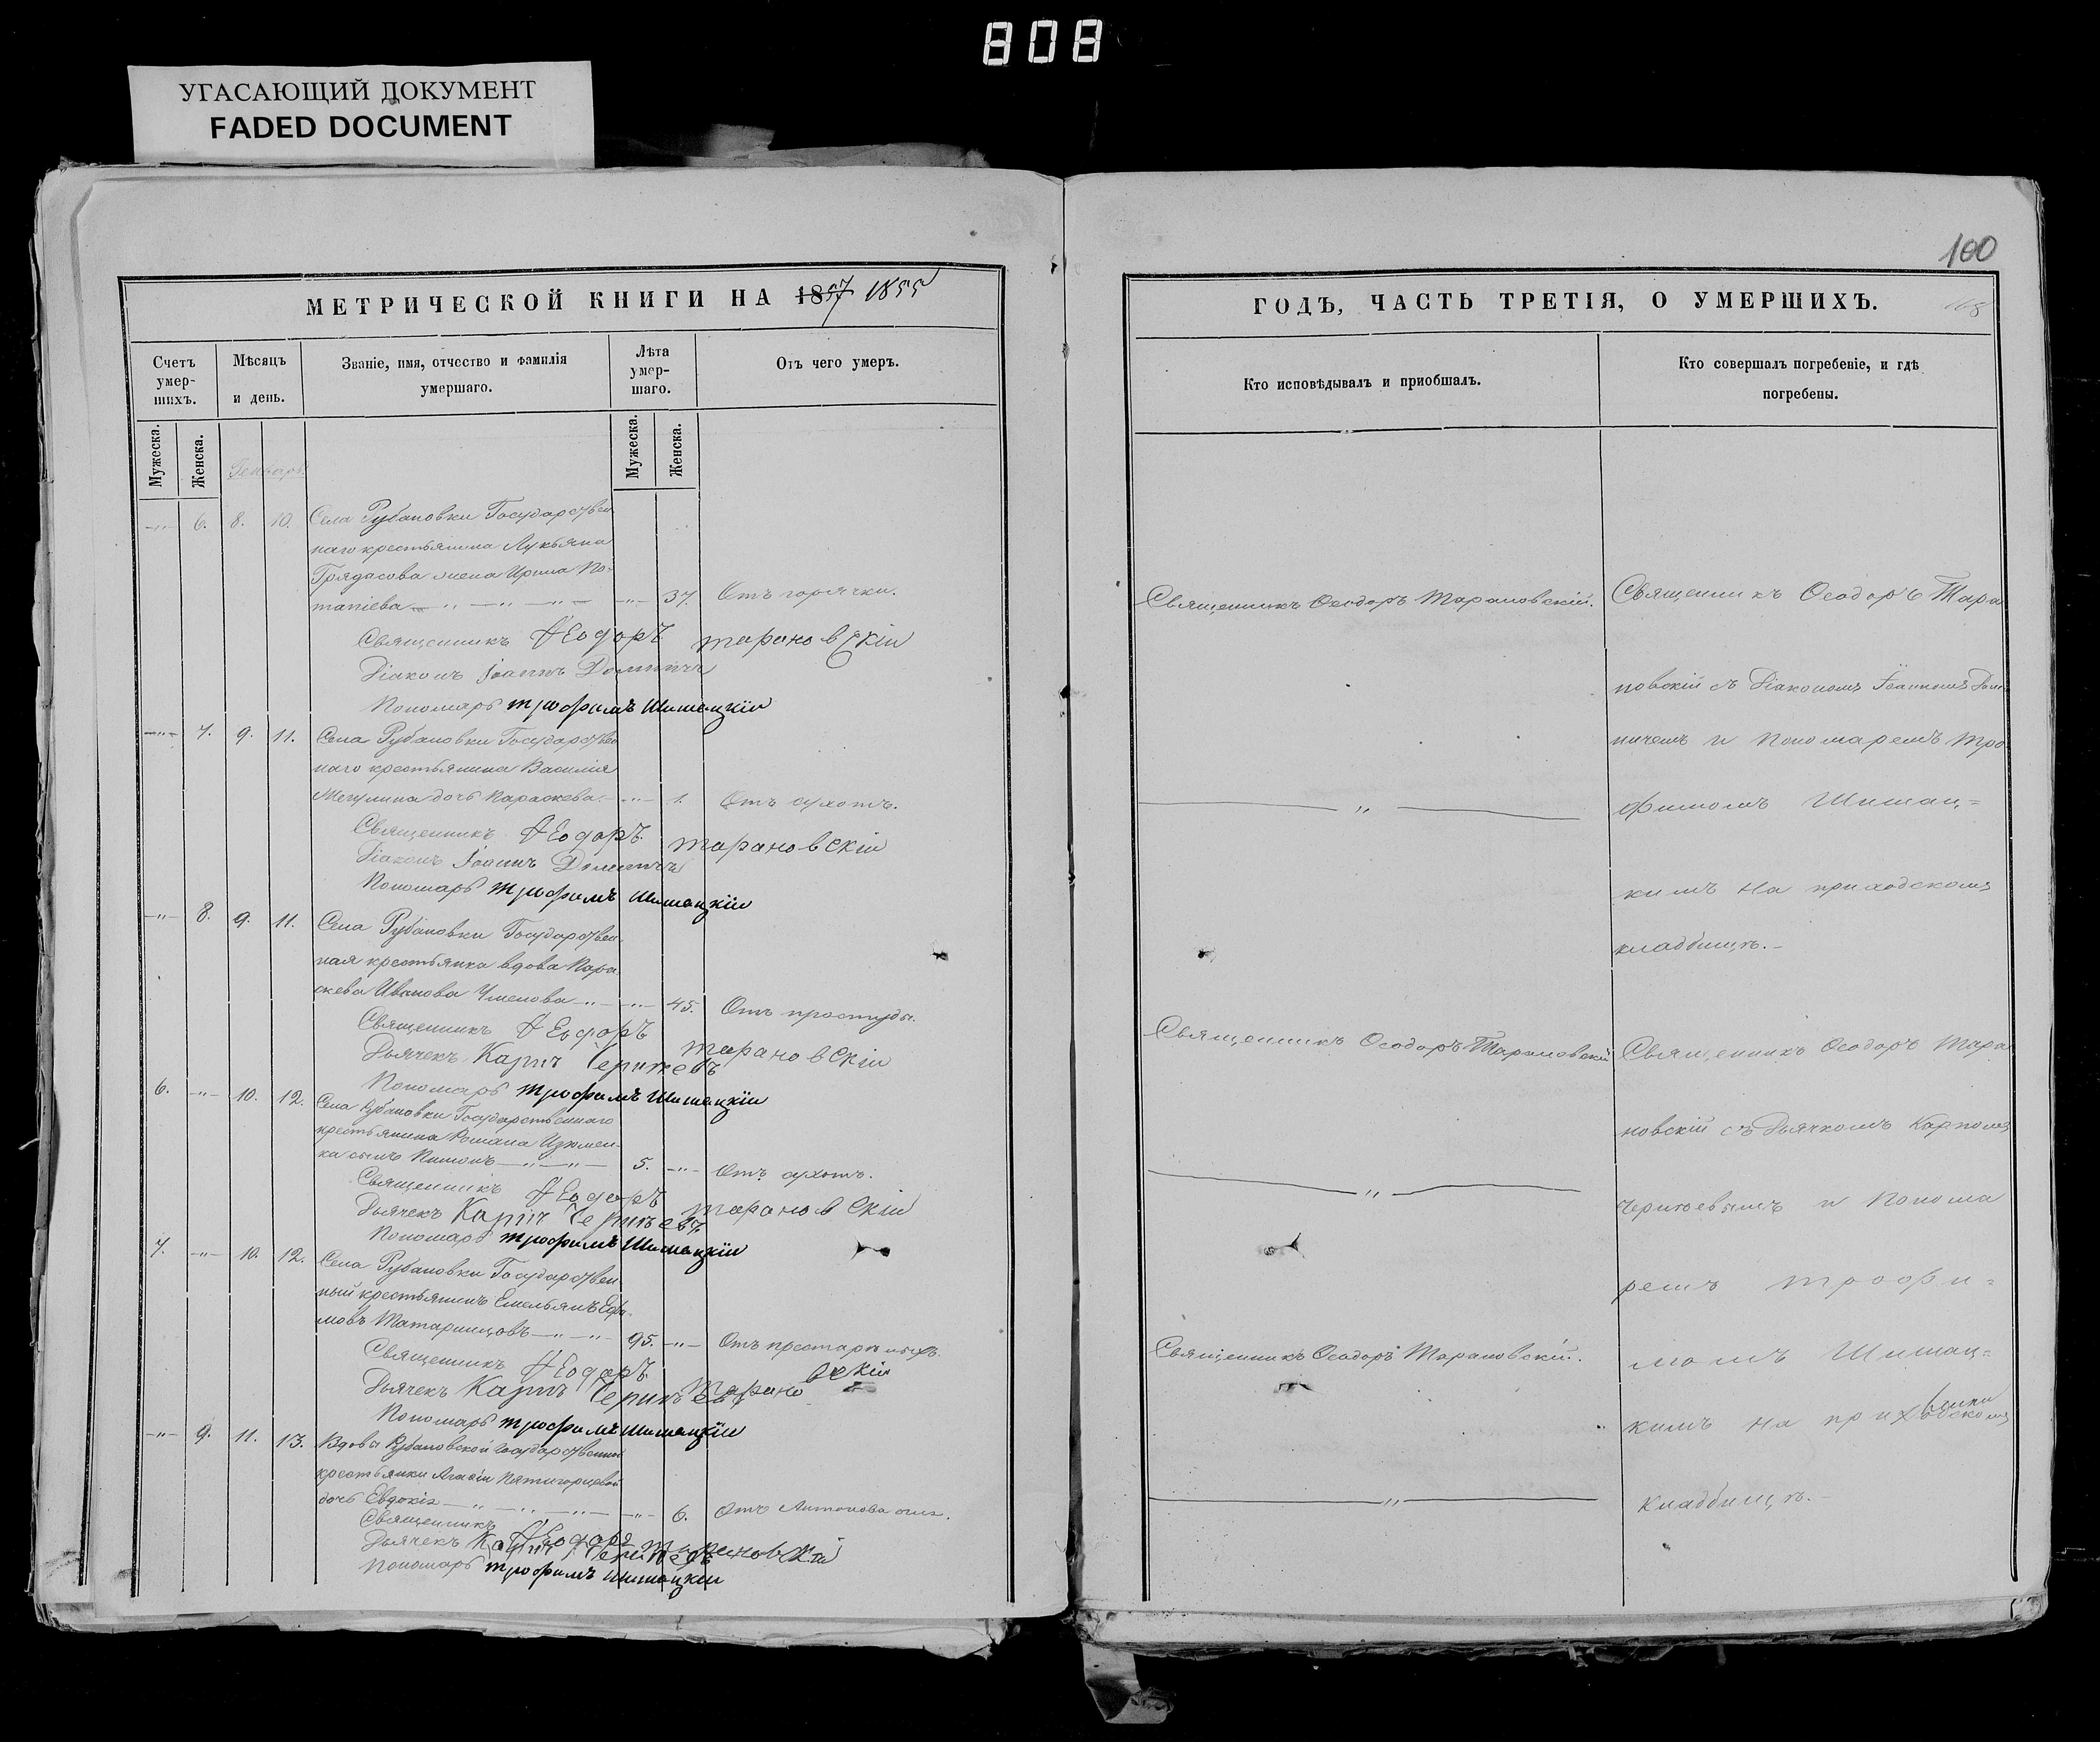 808
УГАСАЮЩИЙ ДОКУМЕНТ
FADED DOCUMENT
МЕТРИЧЕСКОЙ КНИГИ НА 1857 1855
Счетъ умер-шихъ.
Мѣсяцъ и день.
Званіе, имя, отчество и фамилія умершаго.
Лѣта умер-шаго.
Отъ чего умеръ.
Мужеска.
Женска.
Мужеска.
Женска.
Генварь
-"- 6. 8. 10. Села Рубановки Государствен
наго крестьянина Лукьяна
Грядасова жена Ирина По-
тапіева -"- 37. Отъ горячки.
Священникъ Ѳеодоръ Тарановскій
Діаконъ Іоаннъ Доминичъ
Пономарь Трофимъ Шишацкій
-"- 7. 9. 11. Села Рубановки Государствен
наго крестьянина Василія
дочь Параскева -"- 1. Отъ сухотъ.
Священникъ Ѳеодоръ Тарановскій
Діаконъ Іоаннъ Доминичъ
Пономарь Трофимъ Шишацкій
-"- 8. 9. 11. Села Рубановки Государствен
ная крестьянка вдова Пара
скева Иванова -"- 45. Отъ простуды.
Священникъ Ѳеодоръ Тарановскій
Дьячекъ Карпъ
Пономарь Трофимъ Шишацкій
6. -"- 10. 12. Села Рубановки Государственнаго
крестьянина Романа Изюмен-
ка сынъ Пимонъ 5. -"- Отъ сухотъ.
Священникъ Ѳеодоръ Тарановскій
Дьячекъ Карпъ
Пономарь Трофимъ Шишацкій
7. -"- 10. 12. Села Рубановки Государствен
ный крестьянинъ Емельянъ Ефи
мовъ Татаринцовъ 95. -"- Отъ
Священникъ Ѳеодоръ Тарановскій
Дьячекъ Карпъ
Пономарь Трофимъ Шишацкій
-"- 9. 11. 13. Вдовы Рубановской государственной
крестьянки Агаѳіи Пятигорцевой
дочь Евдокія -"- 6. Отъ Антонова огня.
Священникъ Ѳеодоръ Тарановскій
Дьячекъ Карпъ
Пономарь Трофимъ Шишацкій
100
ГОДЪ, ЧАСТЬ ТРЕТІЯ, О УМЕРШИХЪ.
Кто исповѣдывалъ и приобшалъ.
Кто совершалъ погребеніе, и гдѣ погребены.
Священникъ Ѳеодоръ Тарановскій.
Священникъ Ѳеодоръ Тара
новскій съ Діакономъ Іоанномъ Доми
ничемъ и Пономаремъ Тро
"
фимомъ Шишац=
кимъ на приходскомъ
кладбищѣ.-
Священникъ Ѳеодоръ Тарановскій
Священникъ Ѳеодоръ Тара
новскій съ Дьячкомъ Карпомъ
"
и Понома
ремъ Трофи=
Священникъ Ѳеодоръ Тарановскій.
момъ Шишац=
кимъ на приходскомъ
"
кладбищѣ.-